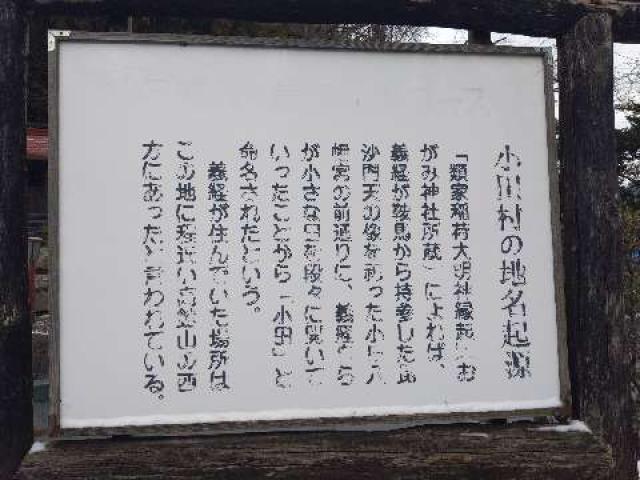 小田村の地名起源
「類家稲荷大明神縁起」(お
がみ神社所蔵)によれば、
義経が鞍馬から持参した毘
沙門天の像を祀った小田八
幡宮の前通りに、義経ら
が小さな田を段々に開いて
いったことから「小田」と
命名されたという。
義経が住んでいた場所は
この地に程近い高館山の西
方にあったと言われている。